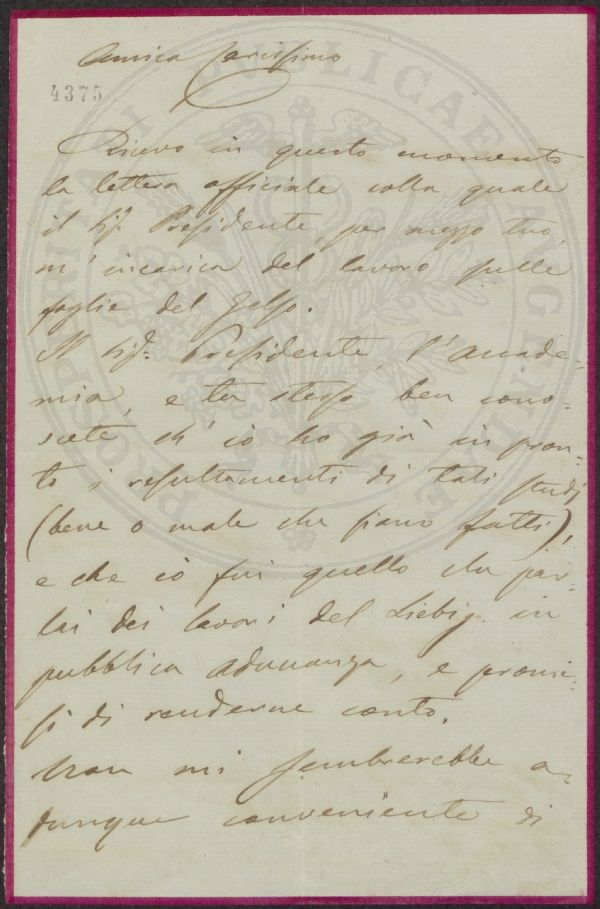 Amico carissimo
4375
Ricevo in questo momento
la lettera officiale colla quale
il Sig. Presidente, per mezzo tuo,
m'incarica del lavoro sulle
foglie del Gelso.
Il Sig. Presidente, l'Accade-
mia, e tu stesso ben cono-
scete ch'io ho già in pron-
to i resultamenti di tali studj
(bene o male che siano fatti),
e che io fui quello che par-
lai dei lavori del Liebig in
pubblica adunanza, e promi-
si di renderne conto.
Non mi sembrerebbe a-
dunque conveniente di
PROSPERITATI PUBLICAE AUGENDAE